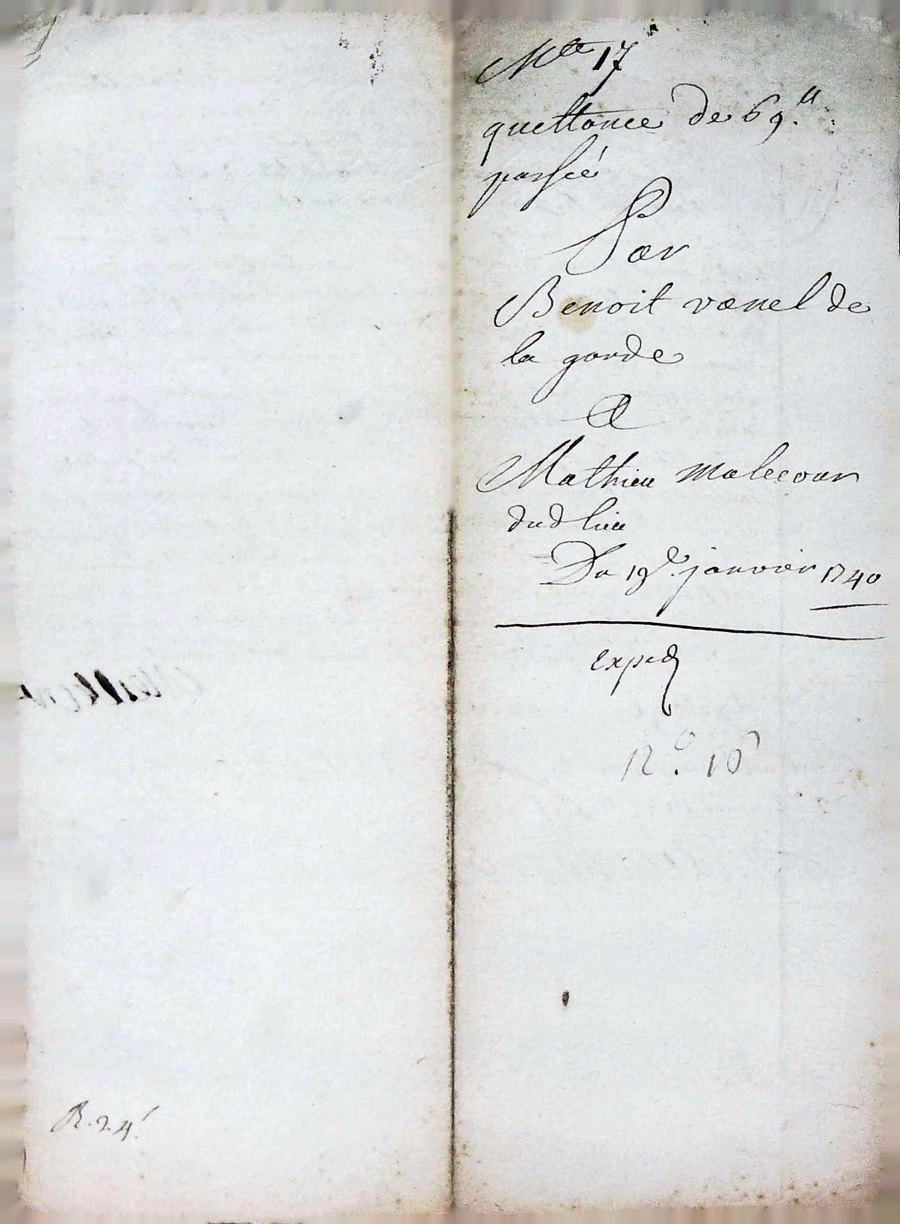 Mte 17
quittance de 69.ll
passée
Par
Benoit vanel de
la garde
A
Mathieu malecour
dud lieu
Du 19e janvier 1740
exped
N°. 10
R. 24s